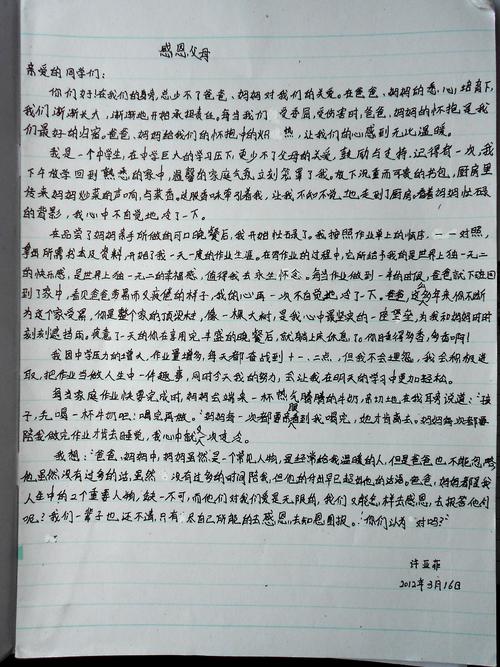 感恩父母
亲爱的同学们:
你们好!在我们的身旁,总少不了爸爸、妈妈对我们的关爱。在爸爸、妈妈的悉心培育下,
我们渐渐长大,渐渐地开始承担责任。每当我们受委屈,受伤害时,爸爸、妈妈的怀抱是我
们最好的内容。爸爸、妈妈给我们的怀抱中的炽热,让我们的心感到无比温暖。
我是一个中学生,在中学巨大的学习压下,更少不了父母的关爱,鼓励与支持,记得有一次,我
下午放学回到熟悉的家中,温馨的家庭气氛立刻笼罩了我。放下沉重而可贵的书包,厨房里
传来妈妈炒菜的声响,与菜香。这股香味牵引着我,让我不知不觉地走到了厨房。看着妈妈忙碌
的背影,我心中不自觉地冷了一下。
在品尝了妈妈亲手所做的可口晚餐后,我开始忙碌了。我按照作业单上的顺序,一一对照,
拿出所需书本及资料,开始了我一天一度的作业生涯。在写作业的过程中,它所给予我的是世界上独一无二
的快乐感,是世界上独一无二的幸福感,值得我去永生怀念。每当作业做到一半的时候,爸爸就下班回
到了家中,看见爸爸劳累而又疲惫的样子,我的心再一次不自觉地冷了下。爸爸,这么多年来你不断
为这个家受累,你是整个家的顶梁柱,像一棵大树,是我心中最坚实的一座堡垒,为我和妈妈时时
刻刻遮挡雨,疲惫了一天的你在享用完丰盛的晚餐后,就躺上床休息。
我因中学压力的增大,作业量增多,每天都奋战到十一、二点,但我不会埋怨,我会积极进
取,把作业当做人生中一件趣事,同时今天我的努力,会让我在明天的学习中更加轻松。
每当家庭作业快要完成时,妈妈会端来一杯热气腾腾的牛奶,亲切地在我耳旁说道:“孩
子,先喝一杯牛奶吧!喝完再做。”妈妈每一次都要看到我喝完,她才肯离去。妈妈每次都要
陪我做完作业才肯去睡觉,我心中就又一次冷冷。
我想:“爸爸、妈妈中,妈妈虽然是一个常见人物,是经常给我温暖的人,但是爸爸也不能忽略,
他虽然没有过多的话,虽然没有过多的时间陪我,但他的付出早已超出他的话语。爸爸、妈妈都是我
人生中的二个重要人物,缺一不可,而他们对我们爱是无限的,我们又能怎样去感恩,去报答他们
呢?我们一辈子也还不清,只有尽自己所能的去感恩,去知恩图报。”你们认为对吗?”
许亚菲
2012年3月16日